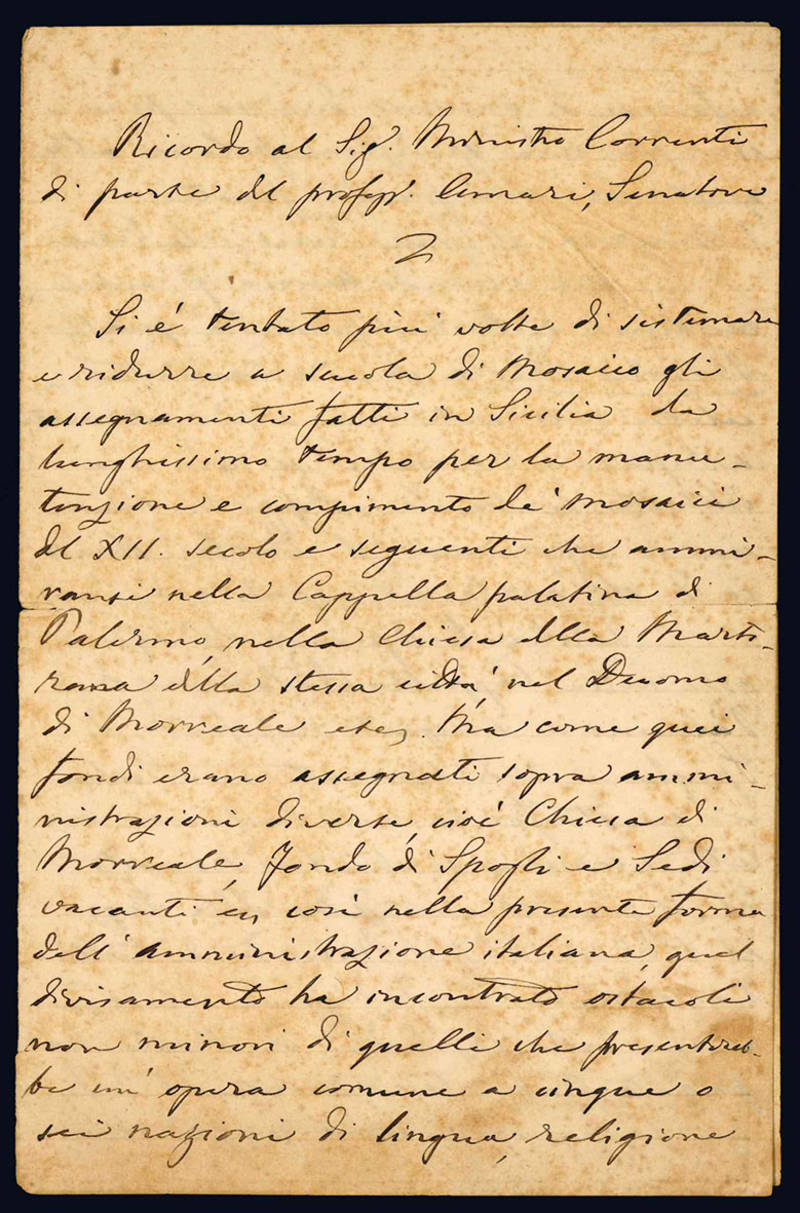 Ricordo al Sig. Ministro Correnti
di parte del profess. Amari, Senatore
Si è tentato più volte di sistemare
e ridurre a scuola di Mosaico gli
assegnamenti fatti in Sicilia da
lunghissimo tempo per la manu-
tenzione e compimento de' mosaici
del XII. secolo e seguenti che ammi-
ransi nella Cappella palatina di
Palermo, nella Chiesa della Marto-
rana della stessa città, nel Duomo
di Morreale etc. Ma come quei
fondi erano assegnati sopra ammi-
nistrazioni diverse, cioè Chiesa di
Morreale, Fondo di Spogli e Sedi
vacanti ec, così nella presente forma
dell'amministrazione italiana, quel
divisamento ha incontrato ostacoli
non minori di quelli che presentereb-
be un' opera comune a cinque o
sei nazioni di lingua, religione